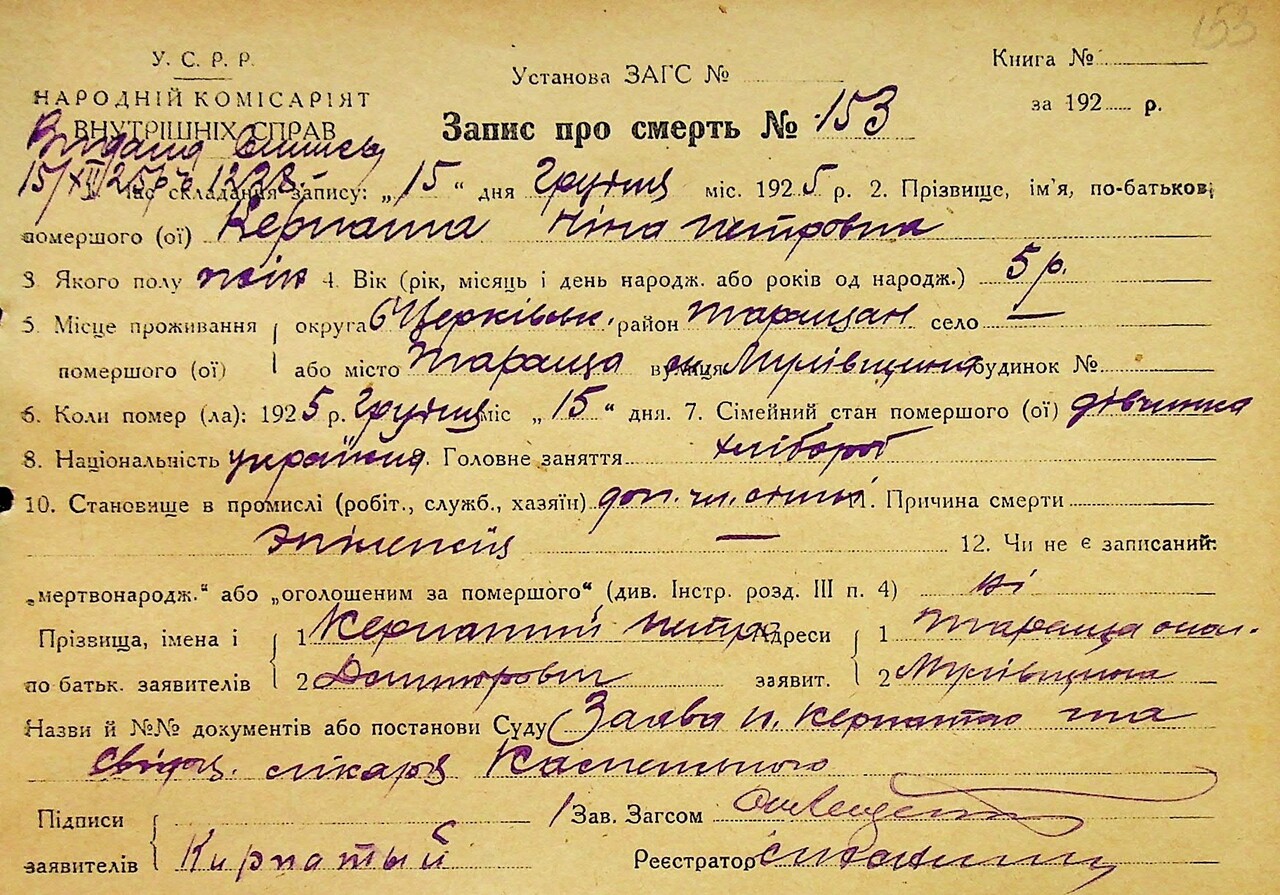 153
У. С. Р. Р.
НАРОДНІЙ КОМІСАРІЯТ
ВНУТРІШНІХ СПРАВ
Установа ЗАГС №
Книга №
за 192 р.
Запис про смерть № 153
Видана
15/XII/25р
час складання запису: „15“ дня Грудня міс. 1925 р. 2. Прізвище, ім'я, по-батькові
помершого (ої) Керпата Ніна Петровна
3. Якого полу жін 4. Вік (рік, місяць і день народж. або років од народж.) 5 р.
5. Місце проживання округа БЦерківськ. район Таращан село —
помершого (ої) або місто Тараща вулиця Мурівщина будинок №
6. Коли помер (ла): 1925 р. Грудня міс „15“ дня. 7. Сімейний стан помершого (ої) дівчинка
8. Національність україн 9. Головне заняття хлібороб
10. Становище в промислі (робіт., служб., хазяїн) доп. чл. сімьї 11. Причина смерти
эпілепсія — 12. Чи не є записаний:
„мертвонародж.“ або „оголошеним за помершого“ (див. Інстр. розд. III п. 4) ні
Прізвища, імена і 1 Керпатий Петро Адреси 1 Тараща
по батьк. заявителів 2 Дмитрович заявит. 2 Мурівщина
Назви й №№ документів або постанови Суду Заява П. Керпатаго та
свідоц. лікаря
Підписи / Зав. Загсом
заявителів Кирпатый Реєстратор